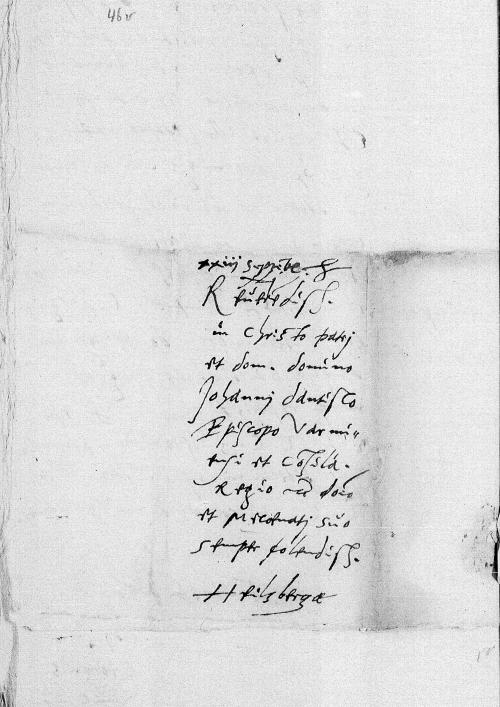 46v
xxiij Septēbr.
Reuerēdiss.
in Christo patrj
et dom. domino
Johannj dantisco
Episcopo Varmi„
ensi et Cōsilia.
Regio
et Mecoenatj suo
semper colendiss.
Heilsbergæ